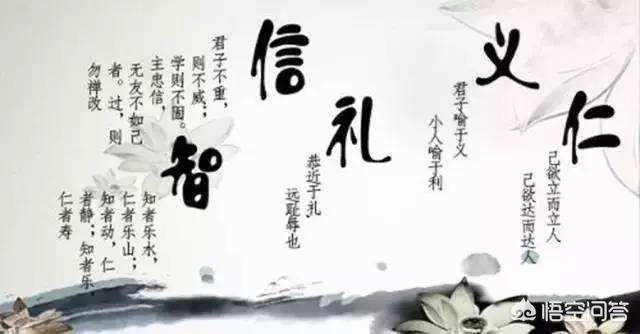 仁
己欲立而立人
己欲达而达人
义
君子喻于义
小人喻于利
礼
恭近于礼
远耻辱也
信
君子不重，
则不威；
学则不固。
主忠信，
无友不如己
者。过，则
勿禅改
智
知者乐水，
仁者乐山；
知者动，仁
者静；知者乐，
仁者寿
悟空问答